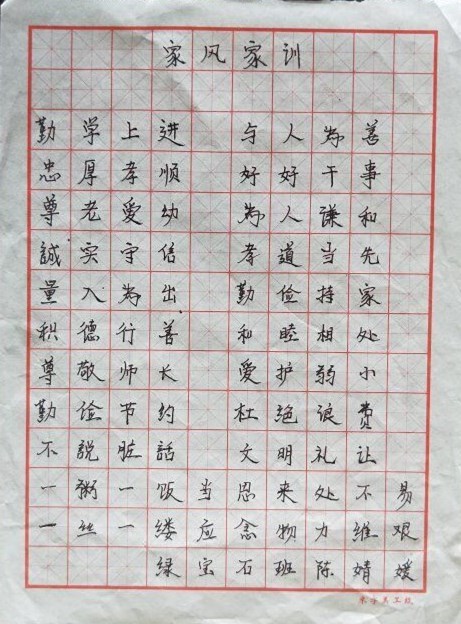 家风家训
勤学上进 与人为善
忠厚孝顺 好好干事
尊老爱幼 为人谦和
誠实守信 孝道当先
量入为出 勤俭持家
积德行善 和睦相处
尊敬师长 爱护弱小
勤俭节约 杜绝浪费
不説脏話 文明礼让
一粥一饭当思来处不易
一丝一缕应念物力維艰
绿宝石班陈婧媛